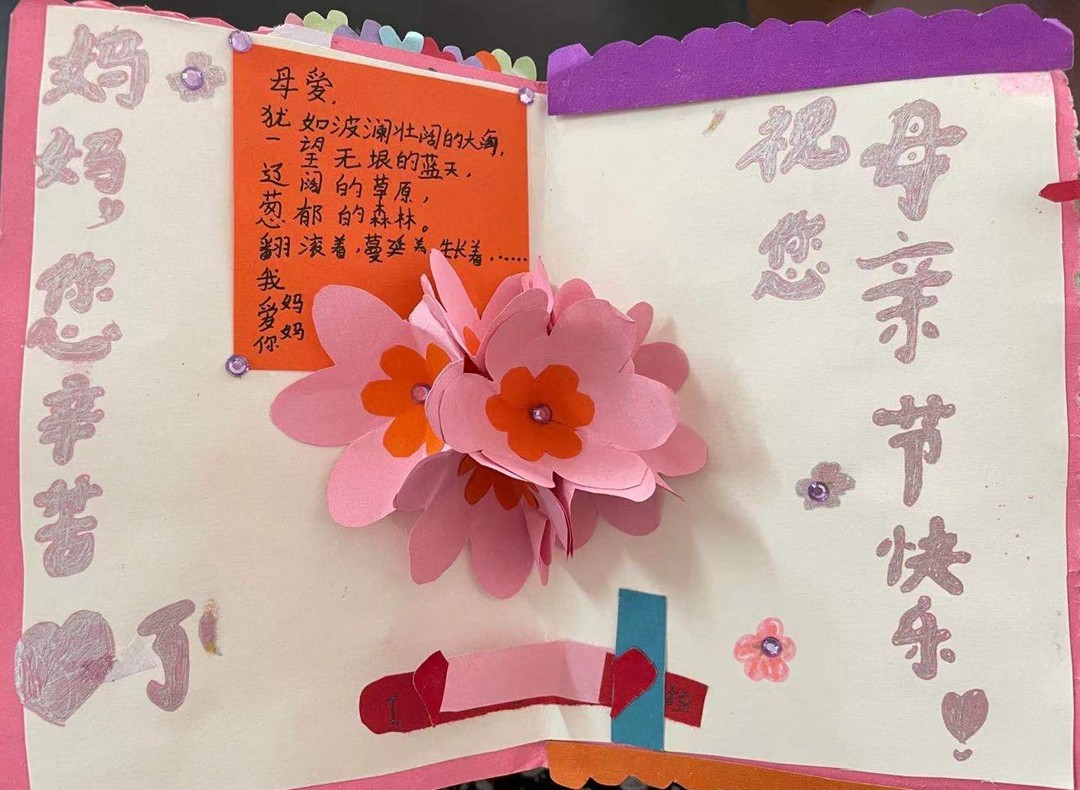 妈妈,您辛苦了
母爱,
犹如波澜壮阔的大海,
一望无垠的蓝天,
辽阔的草原,
葱郁的森林。
翻滚着,蔓延着,生长着,……
我爱你
妈妈
祝您
母亲节快乐
I